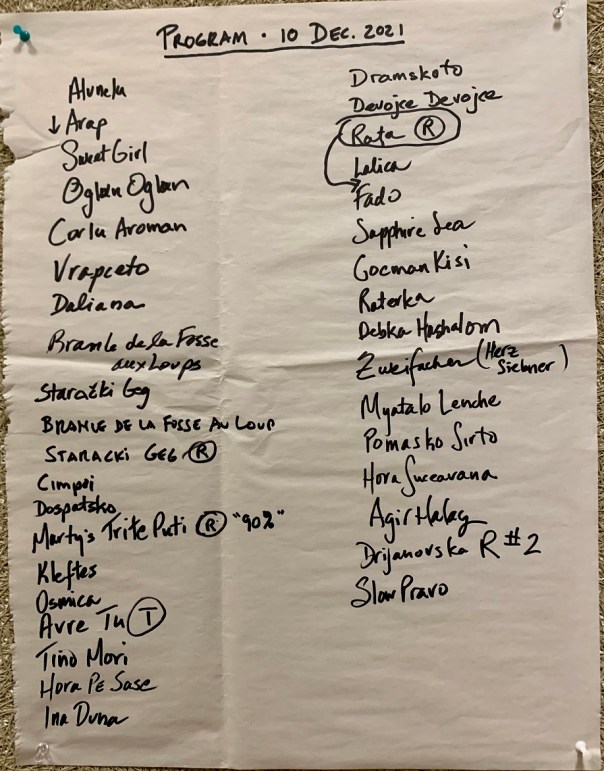 PROGRAM · 10 DEC. 2021
Alunelu
↓ Arap
Sweet Girl
Oglan Oglan
Carlu Aroman
Vrapceto
Daliana
Branle de la Fosse
aux Loups
Staražki Geg
BRANLE DE LA FOSSE AU LOUP
STARACKI GEG Ⓡ
Cimpoi
Dospatsko
Marty's Trite Puti Ⓡ "90%"
Kleftes
Osmica
Avre Tu Ⓣ
Tino Mori
Hora PE Sase
Ina Duna
Dramskoto
Devojce Devojce
Rata Ⓡ
Lalica
Fado
Sapphire Sea
Gocman Kisi
Raterka
Debka Hashalom
Zweifacher (Herz
Siebner)
Myatalo Lenche
Pomasko Sirto
Hora Suceavana
Agir Halay
Drijanovska R #2
Slow Pravo